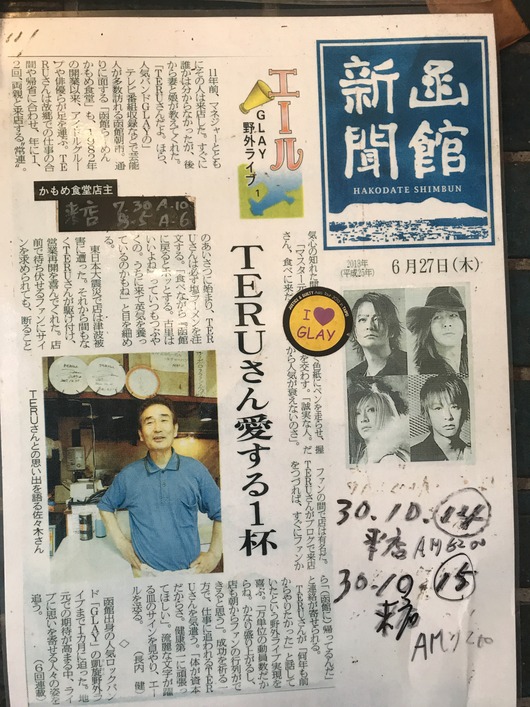 函館
新聞
HAKODATE SHIMBUN
2013年
(平成25年)
6月27日(木)
エール
GLAY
野外ライブ
1
かもめ食堂店主
来店 7.30 A.10
8.5 A.6
TERUさん愛する1杯
11年前、マネジャーととも
にその人は来店した。すぐに
誰かは分からなかったが、後
から妻と娘が教えてくれた。
「TERUさんだよ。ほら、
人気バンドGLAYの」
テレビ番組収録などで芸能
人が多数訪れる函館朝市。通
りに面する「函館らーめん
かもめ食堂」も、1982年
の開業以来、アントルクルー
プや俳優らが足を運ぶ。TE
RUさんは故郷での仕事の合
間や帰省に合わせ、年に1、
2回、両親と来店する"常連"。
気心の知れた間
「マスター元
さん、食べに来た
のあいさつに始まり、TER
Uさんは必ず塩ラーメンを注
文する。「食べながら『函館
に戻るとホッとする。古里は
いいよね』っていつもつぶや
くの。うちに来て英気を養っ
ているのかもね」と目を細め
る。
東日本大震災で店は津波被
害に遭った。それから間もな
くTERUさんが駆け付け、
営業再開を喜んでくれた。店
前で待ち伏せるファンにサイ
ンを求められても、断ること
く色紙にペンを走らせ、握
を交わす。「誠実な人。だ
から人気が衰えないのさ」。
ファンの間で店は有名だ。
TERUさんがブログで来店
をつづれば、すぐにファンか
ら「函館に）帰ってるんだ」
と連絡が寄せられる。
TERUさんが「何年も前
からやりたかった」と話して
いたという野外ライブ実現を
喜ぶ。「万単位の動員数だか
らね。かなり盛り上がるし、
店も朝からファンの行列がで
きると思う」。成功を祈る一
方で、仕事に追われるTER
Uさんを気遣う。「体が資本
だからさ。健康第一に頑張っ
てほしい」。流麗な文字が躍
る皿のサインを見やり、エー
ルを送る。（長内 健）
◇ ◇
函館出身の人気ロックバン
ド「GLAY」の凱旋野外ラ
イブまで1カ月に迫った。地
元での期待が高まる中、ライ
ブに思いを寄せる人々の姿を
追う。（6回連載）
TERUさんとの思い出を語る佐々木さん
I
GLAY
30.10.14
来店 AM
30.10.15
来店
AM